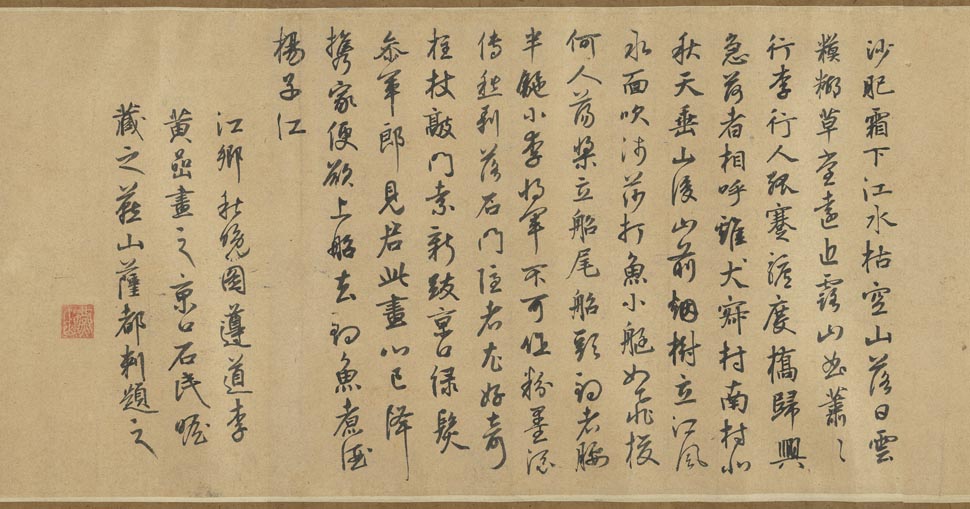 沙肥霜下江水枯空山落日雲
糢糊草堂遠近露山郭蕭〻
行李行人孤蹇驢度橋歸興
急荷者相呼雞犬寂村南村北
秋天垂山後山前烟樹立江風
水面吹浪花打魚小艇如飛梭
何人蕩槳立船尾船頭釣者腰
半駝小李將軍不可作粉墨
傳秋剝落石門隱者尤好奇
拄杖敲門索新跋京口綠髮
參軍郎見君此畫心已降
携家便欲上船去釣魚煮酒
楊子江
江鄉秋晚圖遵道李
黃嵒畫之京口石民瞻
藏之燕山薩都剌題之